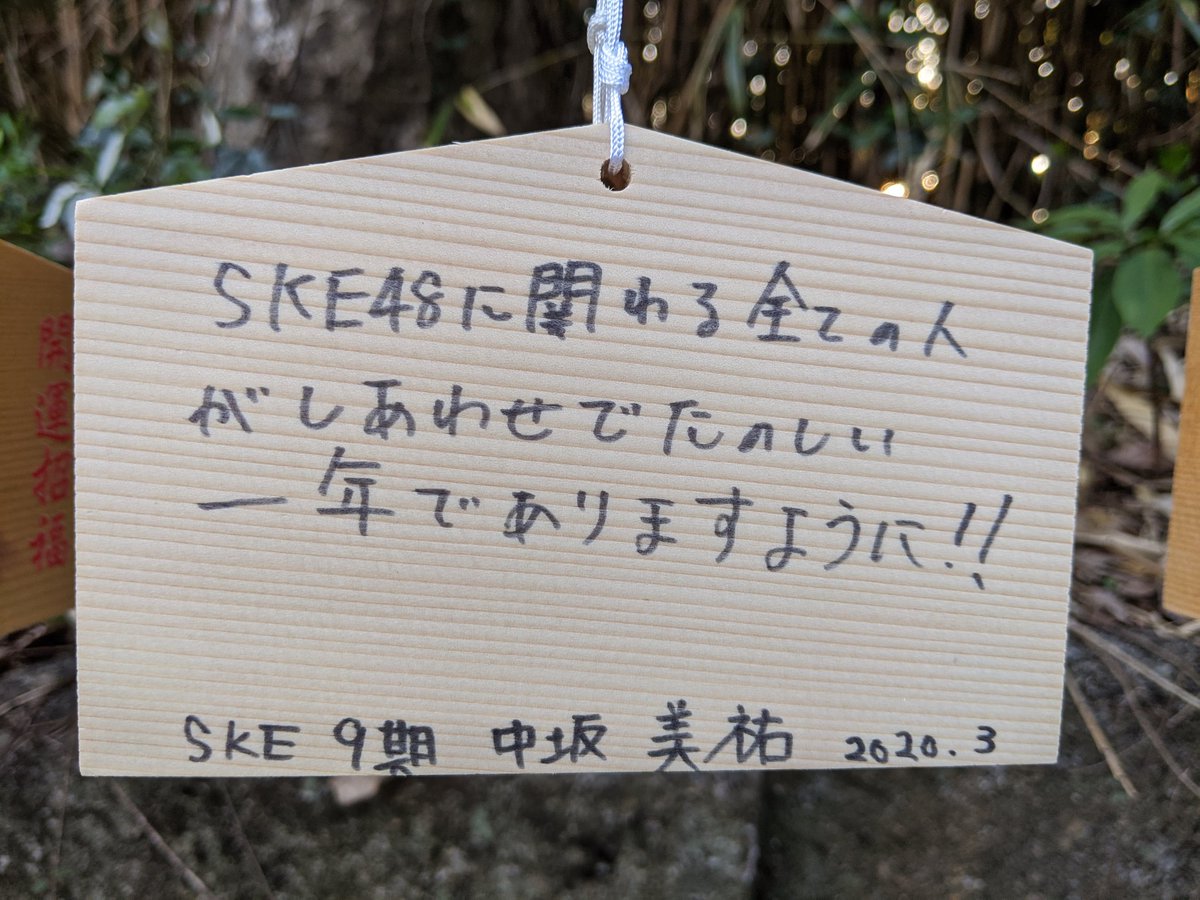 SKE48に関わる全ての人
がしあわせでたのしい
一年でありますように!!
SKE 9期 中坂 美祐 2020.3